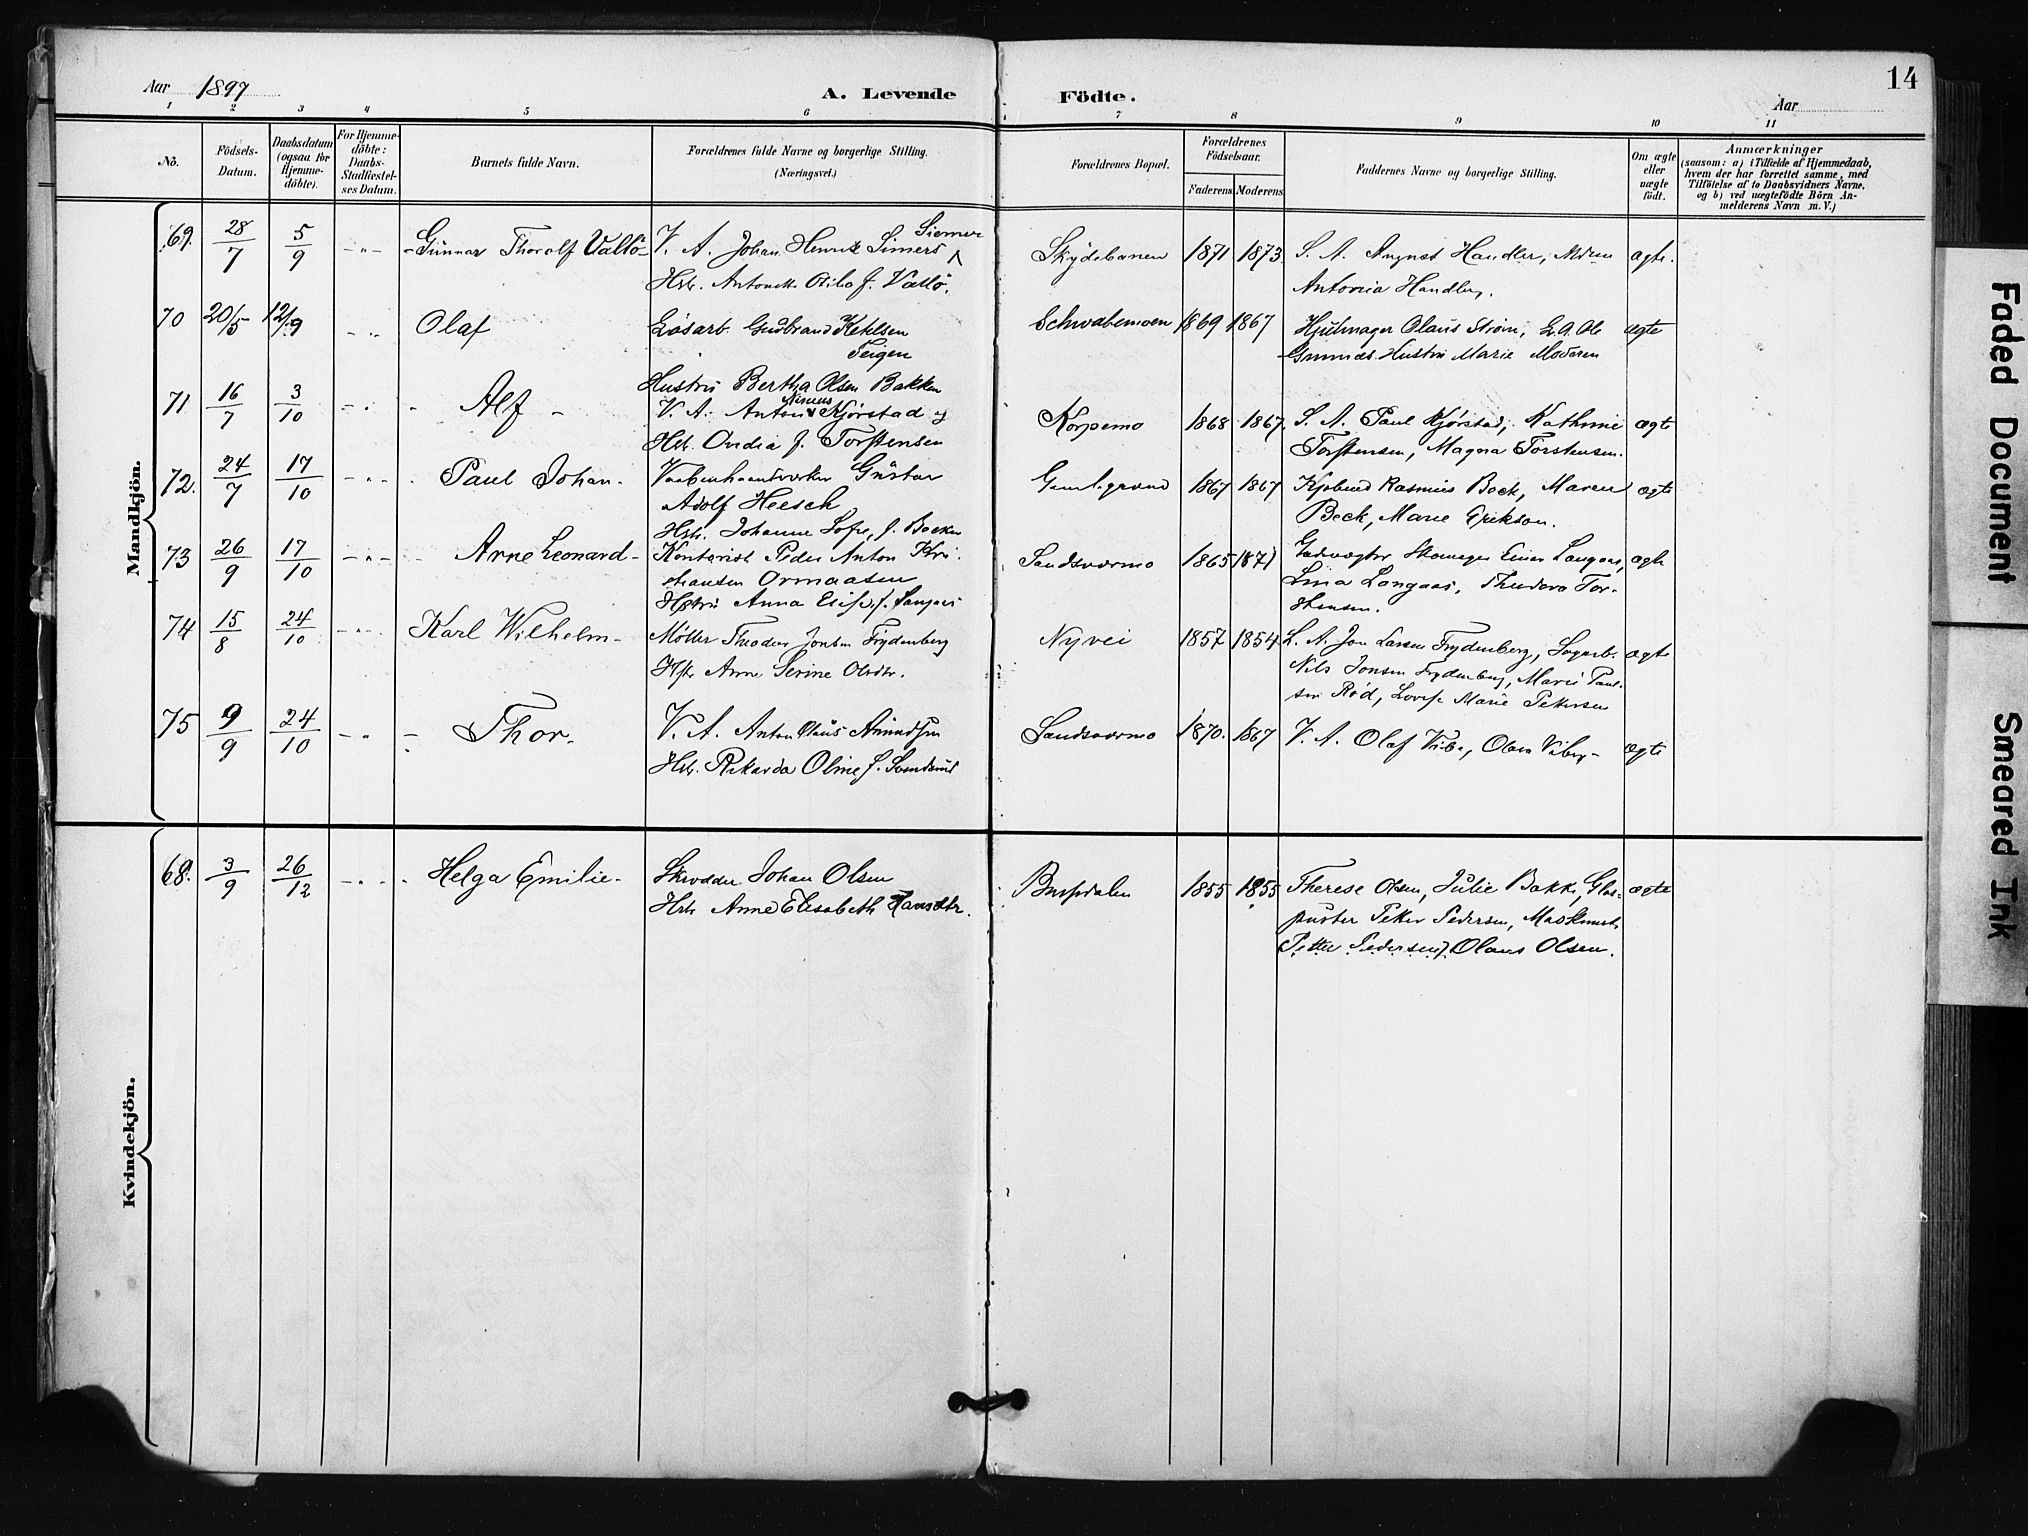 Aar 1897
A. Levende Födte.
Aar
14
1 2 3 4 5 6 7 8 9 10 11
No.
Födsels-Datum.
Daabsdatum (ogsaa for Hjemme-döbte).
For Hjemme-döbte: Daabs-Stadfæstel-ses Datum.
Barnets fulde Navn.
Forældrenes fulde Navne og borgerlige Stilling.
(Næringsvei.)
Forældrenes Bopæl.
Forældrenes Födselsaar.
Faderens Moderens
Faddernes Navne og borgerlige Stilling.
Om ægte eller uægte födt.
Anmærkninger
(saasom: a) i Tilfælde af Hjemmedaab,
hvem der har forrettet samme, med
Tilföielse af to Daabsvidners Navne,
og b) ved uægtefödte Börn An-
melderens Navn m. V.)
Mandkjön.
69. 28/7 5/9 - " - Gunnar Thorolf Vallö V. A. Johan Henrik Simers Siemers Skydebanen 1871 1873. S. A. August Handler, Moren ægte.
Hstr. Antonette Otilo f. Vallö. Antonia Handberg.
70 20/5 12/9 - " - Olaf Lösarb. Gudbrand Ketilsen Schwabemoen 1869 1867 Hjulmager Olaus Strøm, L. A. Ole ægte
Teigen Hustru Marie Moderen
Hustru Bertha Olsen Bakken
71 16/7 3/10 - " - Alf V. A. Anton Nirnus Kjørstad og Korpemo 1868 1867. S. A. Paul Kjørstad, Kathrine ægte
Hstr. Ovidia f. Torstensen Torstensen, Magna Torstensen.
72. 24/7 17/10 - " - Paul Johan Vaabenhaandverker Gustav Gamlegrend 1867 1867 Kjøbmd Rasmus Beck, Maren ægte
Adolf Heesch Beck, Marie Erikson.
Hstr. Johanne Sofie, f. Becken
73 26/9 17/10 - " - Arne Leonard Kontorist Peder Anton Kri- Sandsværmo 1865 1871 Skomager Einar Langaas, ægte
stiansen Ormaasen Lina Langaas, Theodora Tor-
Hstru Anna Elise f. Langaas stensen.
74 15/8 24/10 - " - Karl Wilhelm Møller Theodor Jonsen Frydenberg Nyvei 1857 1854 L. A. Jon Larsen Frydenberg, ægte
Hstr Anne Serine Olsdtr. Nils Jonsen Frydenberg, Marie Paul-
sen Rød, Lovise Marie Pettersen
75 9/9 24/10 - " - Thor. V. A. Anton Olaus Amundsen Sandsværmo 1870. 1867 V. A. Olaf Viberg, Olava Viberg ægte
Hstr. Rikarda Oline f. Svendsrud
Kvindekjön.
68. 3/9 26/12 - " - Helga Emilie Skrædder Johan Olsen Bussdalen 1855 1855 Therese Olsen, Julie Bakke, Glas- ægte
Hstr. Anne Elisabeth Hansdtr. puster Petter Pedersen, Maskinist
Petter Pedersen, Olaus Olsen.
Faded Document
Smeared Ink